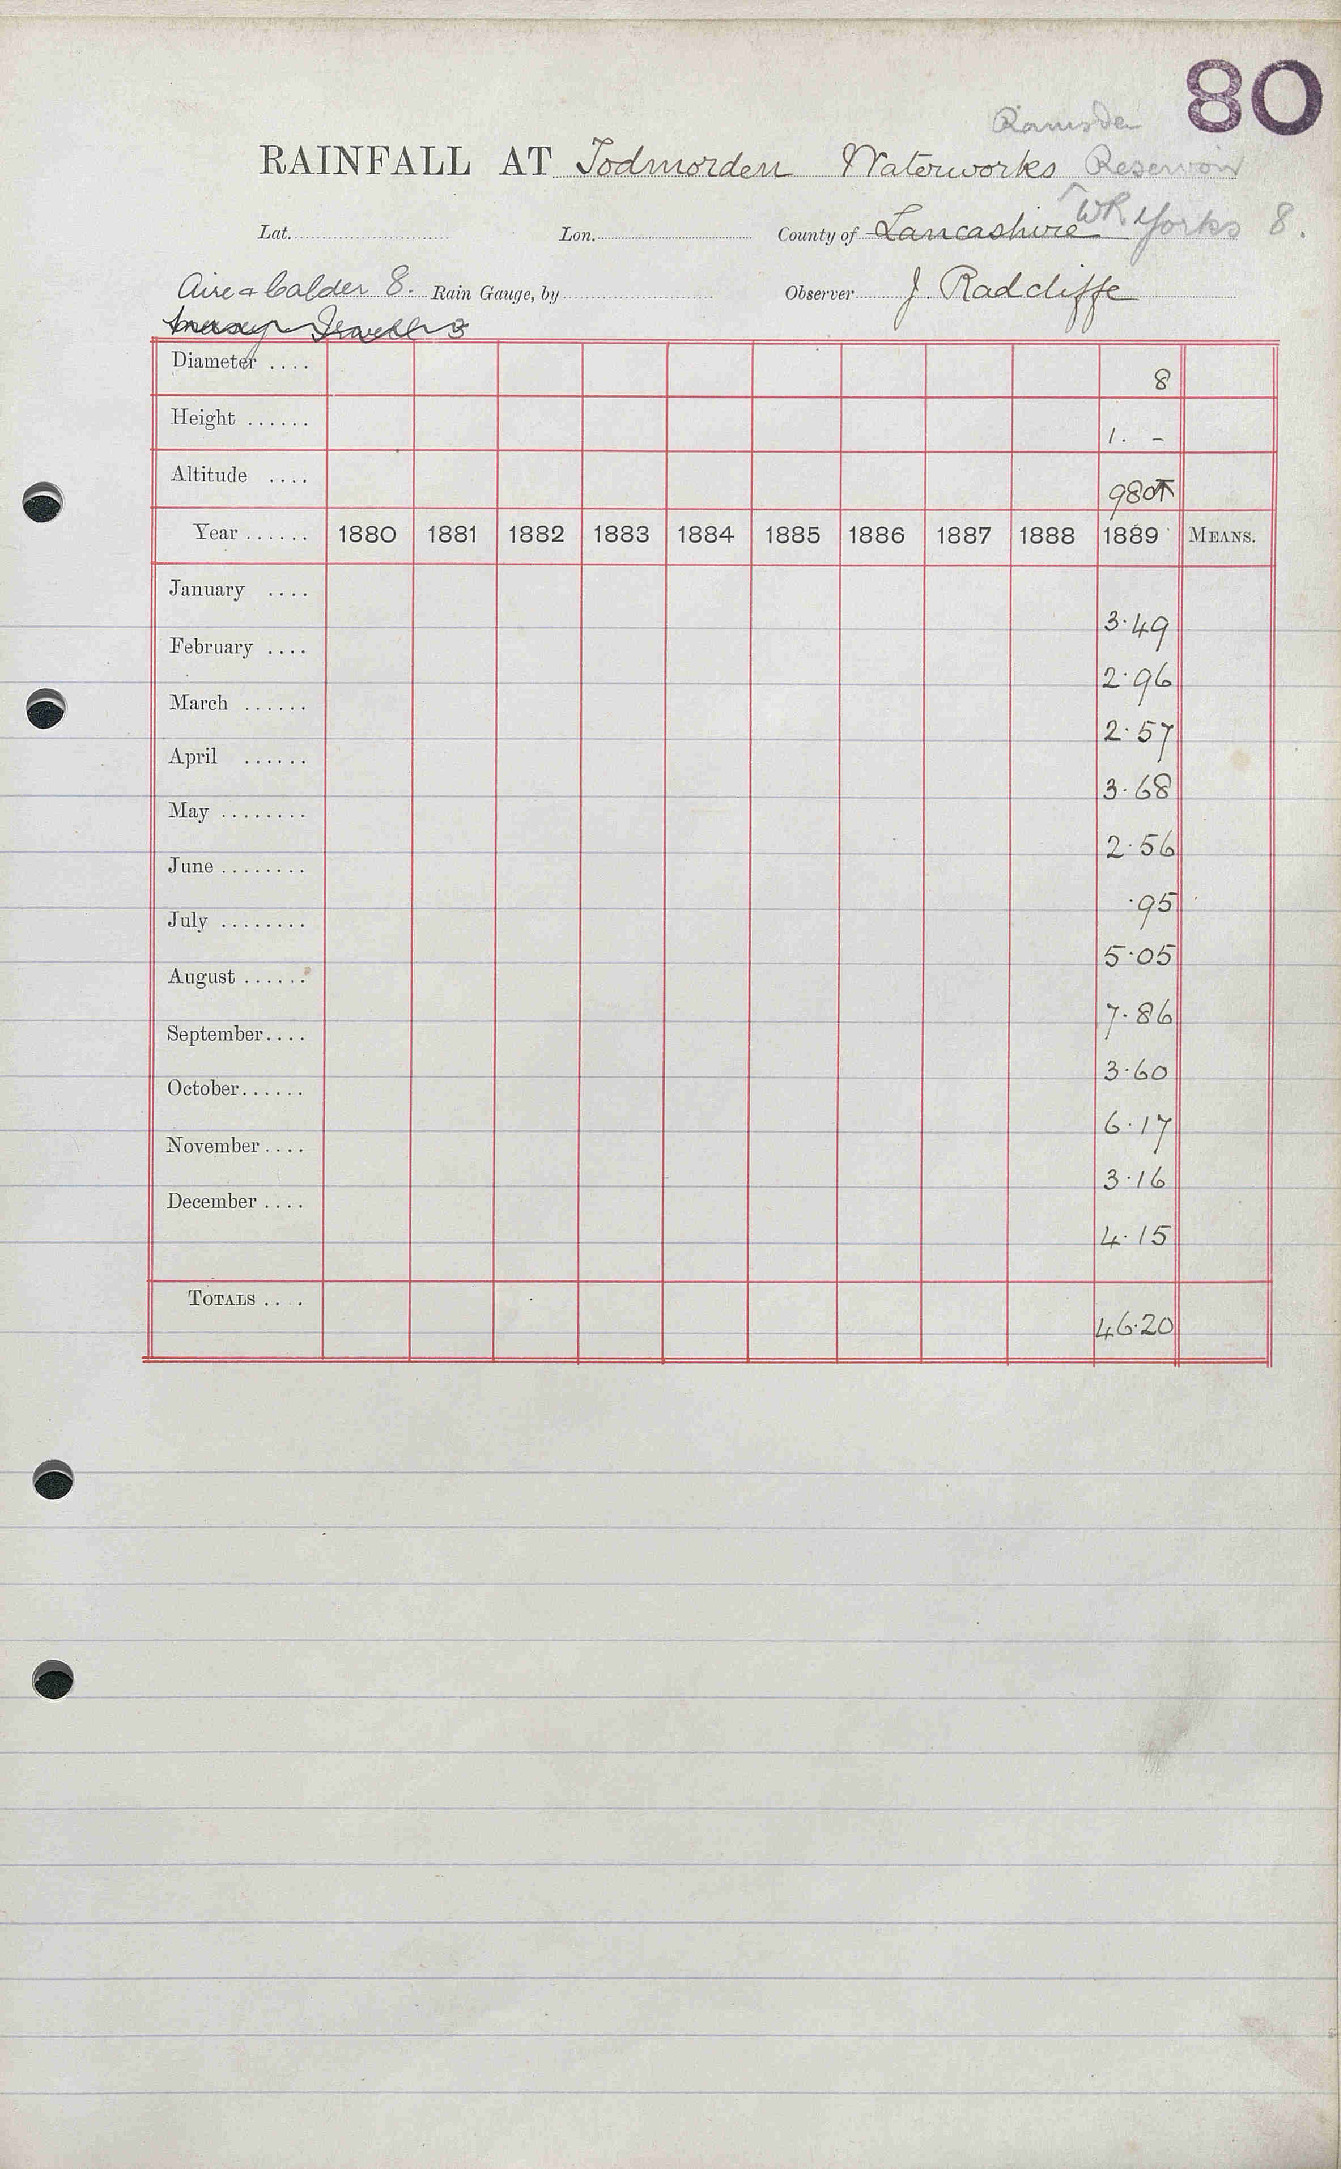 80
Ramsden
RAINFALL AT Todmorden Waterworks Reservoir
Lat. Lon. County of Lancashire WR Yorks 8.
Aire & Calder 8. Rain Gauge, by Observer J. Radcliffe
Mersey Irwell 3
Diameter .... 8
Height ...... 1. -
Altitude .... 980T
Year ...... 1880 1881 1882 1883 1884 1885 1886 1887 1888 1889 MEANS.
January .... 3.49
February .... 2.96
March ...... 2.57
April ...... 3.68
May ........ 2.56
June ........ .95
July ........ 5.05
August ...... 7.86
September .... 3.60
October ...... 6.17
November .... 3.16
December .... 4.15
TOTALS .... 46.20